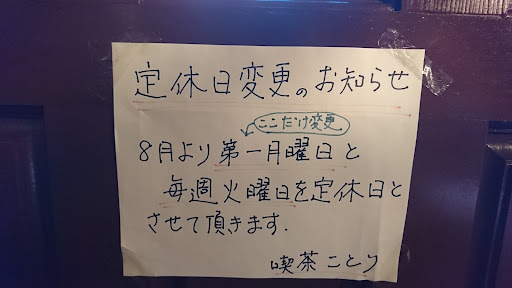 定休日変更のお知らせ
ここだけ変更
8月より第一月曜日と
毎週火曜日を定休日と
させて頂きます.
喫茶ことり